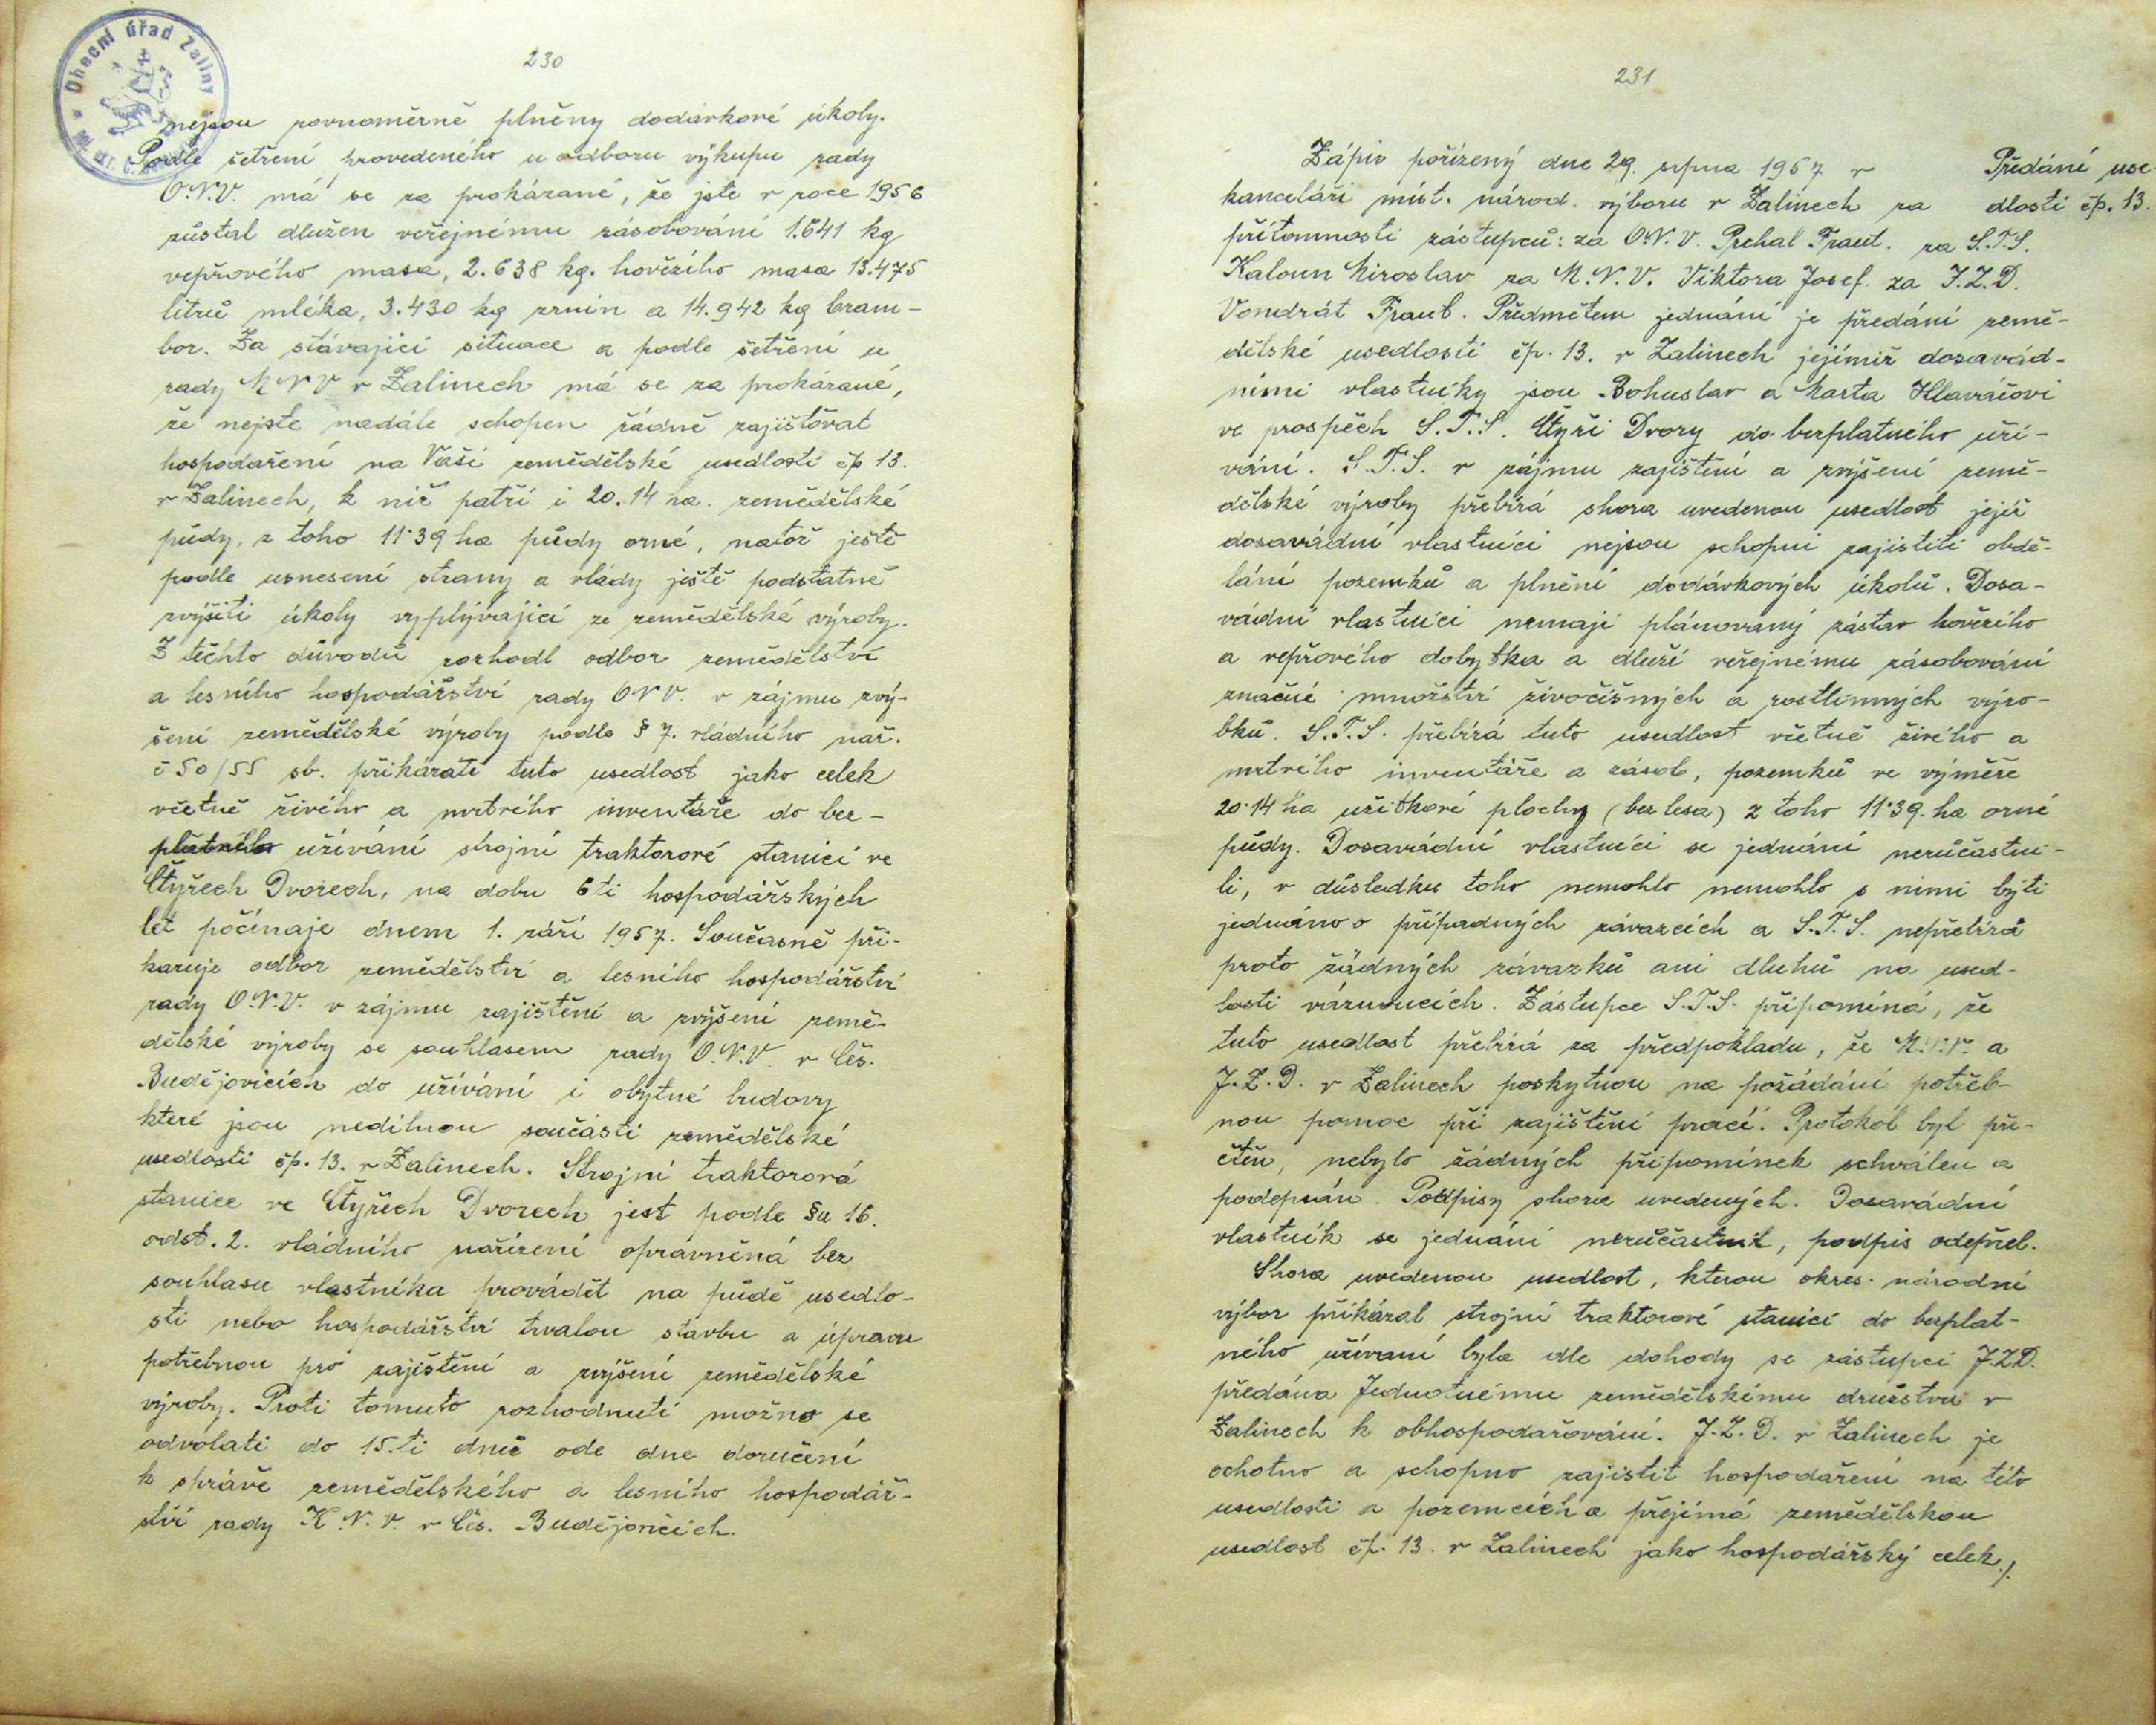 Obecní úřad Zaliny
230
nejsou rovnoměrně plněny dodávkové úkoly.
Podle šetření provedeného u odboru výkupu rady
O.N.V. má se za prokázané, že jste v roce 1956
zůstal dlužen veřejnému zásobování 1.641 kg
vepřového masa, 2.638 kg. hovězího masa 13.475
litrů mléka, 3.430 kg zrnin a 14.942 kg bram-
bor. Za stávající situace a podle šetření u
rady M N V v Zalinech má se za prokázané,
že nejste nadále schopen řádně zajišťovat
hospodaření na Vaší zemědělské usedlosti čp 13.
v Zalinech, k níž patří i 20.14 ha. zemědělské
půdy, z toho 11·39 ha půdy orné, natož ještě
podle usnesení strany a vlády ještě podstatně
zvýšiti úkoly vyplývající ze zemědělské výroby.
Z těchto důvodů rozhodl odbor zemědělství
a lesního hospodářství rady ONV. v zájmu zvý-
šení zemědělské výroby podle § 7. vládního nař.
č 50/55 sb. přikázati tuto usedlost jako celek
včetně živého a mrtvého inventáře do bez-
platného užívání strojní traktorové stanici ve
Čtyřech Dvorech, na dobu 6ti hospodářských
let počínaje dnem 1. září 1957. Současně při-
kazuje odbor zemědělství a lesního hospodářství
rady O.N.V. v zájmu zajištění a zvýšení země-
dělské výroby se souhlasem rady O.N.V. v Čes.
Budějovicích do užívání i obytné budovy
které jsou nedílnou součástí zemědělské
usedlosti čp. 13. v Zalinech. Strojní traktorová
stanice ve Čtyřech Dvorech jest podle §u 16.
odst. 2. vládního nařízení oprávněná bez
souhlasu vlastníka provádět na půdě usedlo-
sti nebo hospodářství trvalou stavbu a úpravu
potřebnou pro zajištění a zvýšení zemědělské
výroby. Proti tomuto rozhodnutí možno se
odvolati do 15.ti dnů ode dne doručení
k správě zemědělského a lesního hospodář-
ství rady K.N.V. v Čes. Budějovicích.
231
Předání use-
dlosti čp. 13.
Zápis pořízený dne 29. srpna 1957 v
kanceláři míst. národ. výboru v Zalinech za
přítomnosti zástupců: za O.N.V. Prchal Frant. za S.T.S.
Kaloun Miroslav za M.N.V. Viktora Josef. za J.Z.D.
Vondrát Frant. Předmětem jednání je předání země-
dělské usedlosti čp. 13. v Zalinech jejímiž dosavád-
ními vlastníky jsou Bohuslav a Marta Hlaváčovi
ve prospěch S.T.S. Čtyři Dvory do bezplatného uží-
vání. S.T.S. v zájmu zajištění a zvýšení země-
dělské výroby přebírá shora uvedenou usedlost jejíž
dosavádní vlastníci nejsou schopni zajistiti obdě-
lání pozemků a plnění dodávkových úkolů. Dosa-
vádní vlastníci nemají plánovaný zástav hovězího
a vepřového dobytka a dluží veřejnému zásobování
značné množství živočišných a rostlinných výro-
bků. S.T.S. přebírá tuto usedlost včetně živého a
mrtvého inventáře a zásob, pozemků ve výměře
20·14 ha užitkové plochy (bez lesa) z toho 11·39. ha orné
půdy. Dosavádní vlastníci se jednání nezúčastni-
li, v důsledku toho nemohlo nemohlo s nimi býti
jednáno o případných závazcích a S.T.S. nepřebírá
proto žádných závazků ani dluhů na used-
losti váznoucích. Zástupce S.T.S. připomíná, že
tuto usedlost přebírá za předpokladu, že M.N.V. a
J.Z.D. v Zalinech poskytnou na požádání potřeb-
nou pomoc při zajištění prací. Protokol byl pře-
čtěn, nebylo žádných připomínek schválen a
podepsán. Podpisy shora uvedených. Dosavádní
vlastník se jednání nezúčastnil, podpis odepřel.
Shora uvedenou usedlost, kterou okres. národní
výbor přikázal strojní traktorové stanici do bezplat-
ného užívaní byla dle dohody se zástupci J.Z.D.
předána Jednotnému zemědělskému družstvu v
Zalinech k obhospodařování. J.Z.D. v Zalinech je
ochotno a schopno zajistit hospodaření na této
usedlosti a pozemcích a přejímá zemědělskou
usedlost čp. 13. v Zalinech jako hospodářský celek./.